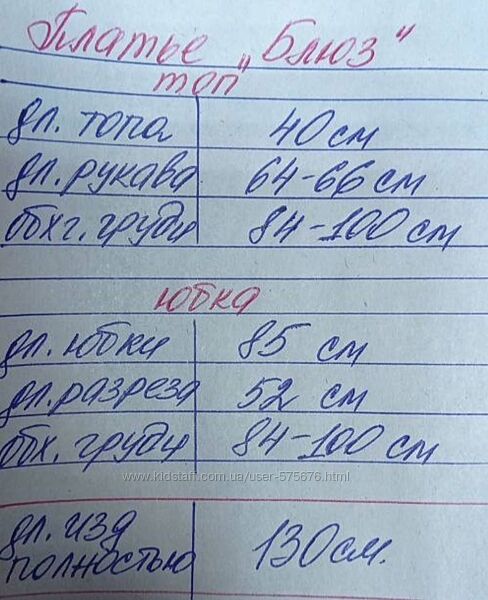 Платье „Блюз“
топ
дл. топа 40 см
дл. рукава 64-66 см
обхг. груди 84-100 см
юбка
дл. юбки 85 см
дл. разреза 52 см
обх. груди 84-100 см
www.kidstaff.com.ua/user-575676.html
дл. изд
полностью 130 см.